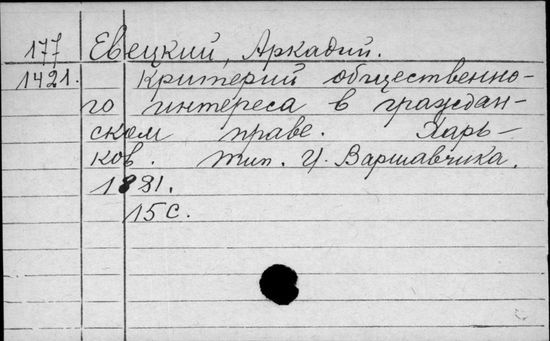 177 Евецкий, Аркадий.
1421. Критерий общественно-
го интереса в граждан-
ском праве. Харь-
ков. Тип. И. Варшавчика.
1881.
15 с.